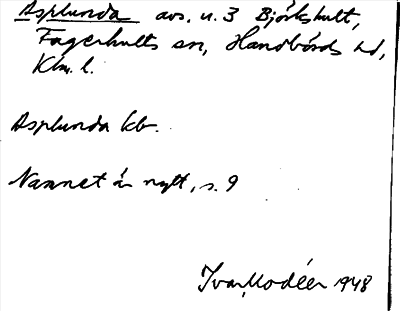 Asplunda avs. u. 3 Björkshult,
Fagerhults sn, Handbörds hd,
Klm. l.
Asplunda kb.
Namnet är nytt, s. 9
Ivar Modéer 1948